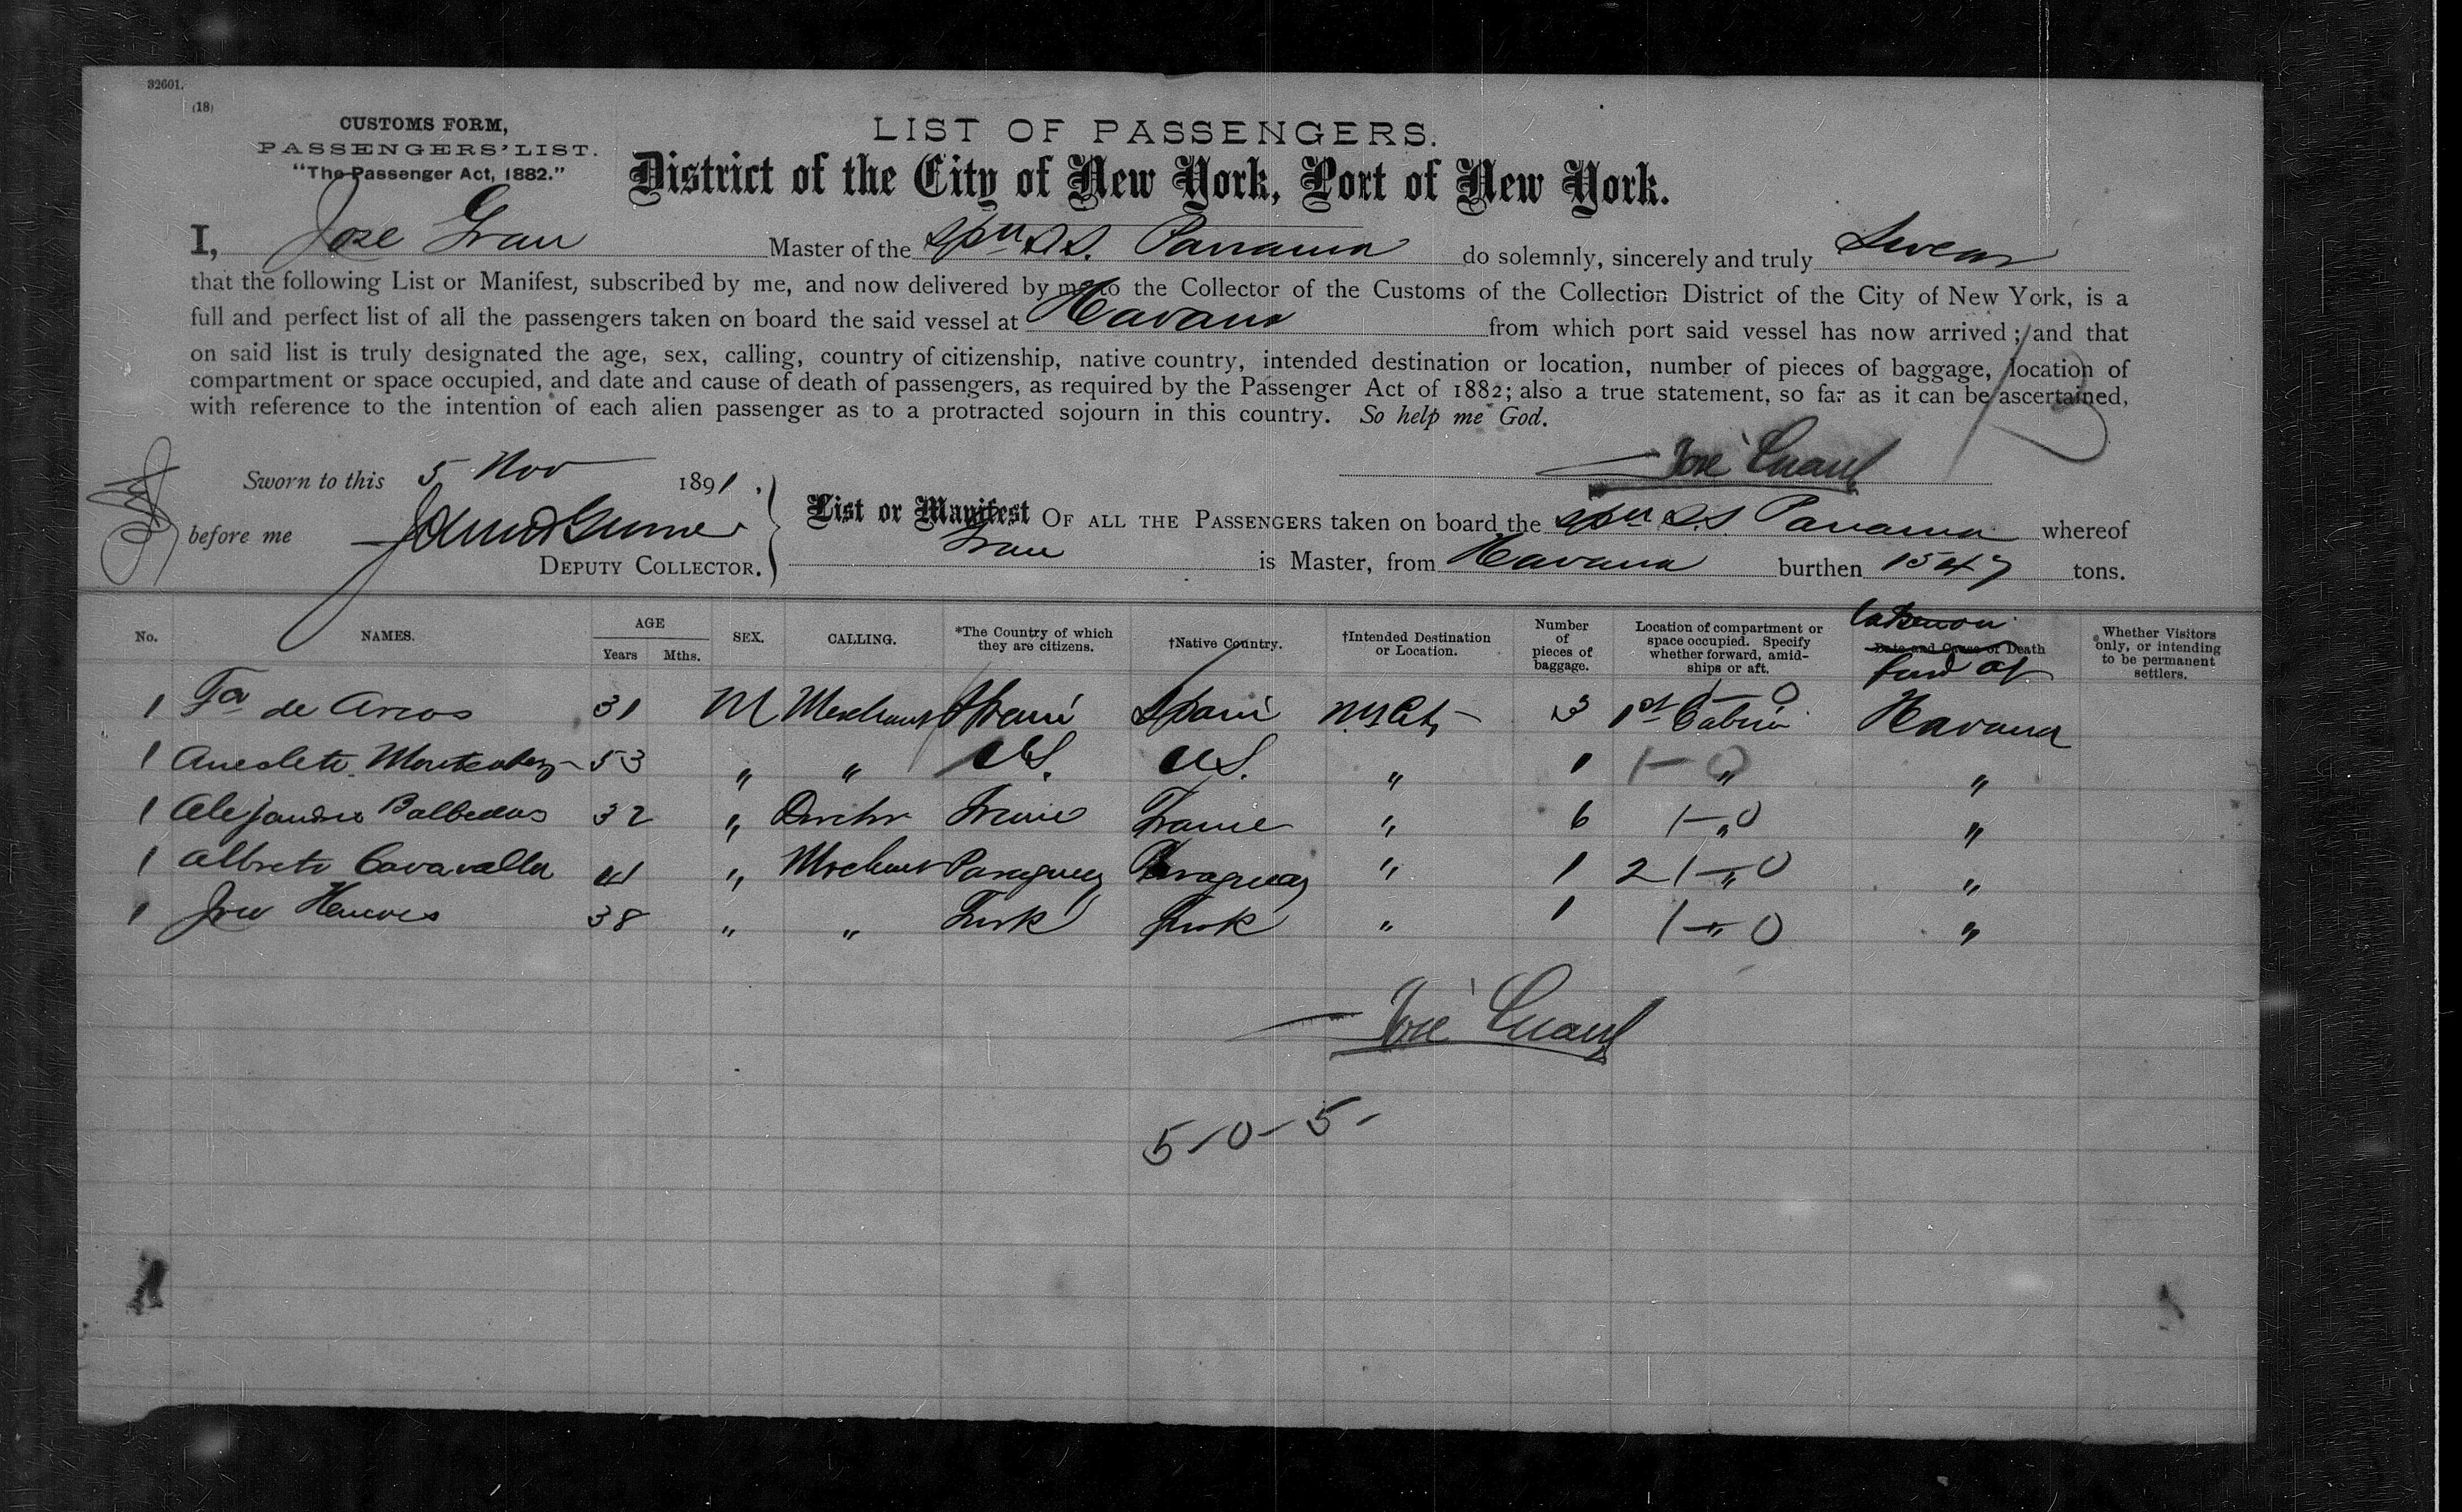 32601.
(18)
CUSTOMS FORM,
PASSENGERS' LIST.
"The Passenger Act, 1882."
LIST OF PASSENGERS.
District of the City of New York, Port of New York.
I, Jose Grau Master of the Spn S.S. Panama do solemnly, sincerely and truly Swear
that the following List or Manifest, subscribed by me, and now delivered by me to the Collector of the Customs of the Collection District of the City of New York, is a
full and perfect list of all the passengers taken on board the said vessel at Havana from which port said vessel has now arrived; and that
on said list is truly designated the age, sex, calling, country of citizenship, native country, intended destination or location, number of pieces of baggage, location of
compartment or space occupied, and date and cause of death of passengers, as required by the Passenger Act of 1882; also a true statement, so far as it can be ascertained,
with reference to the intention of each alien passenger as to a protracted sojourn in this country. So help me God.
José Grau
Sworn to this 5 Nov 1891.
before me
DEPUTY COLLECTOR.
List or Manifest OF ALL THE PASSENGERS taken on board the Spn S.S. Panama whereof
Grau is Master, from Havana burthen 1547 tons.
No. NAMES. AGE Years Mths. SEX. CALLING. *The Country of which they are citizens. †Native Country. †Intended Destination or Location. Number of pieces of baggage. Location of compartment or space occupied. Specify whether forward, amidships or aft. Date and Cause of Death Whether Visitors only, or intending to be permanent settlers.
1 Fco de Arcos 31 M Merchant Spain Spain N Y City 3 1st Cabin 1-0 Havana
1 53 " " U.S. U.S. " 1 1-0 " "
1 Alejandro 32 " France France " 6 1-0 " "
1 41 " Merchant Paraguay Paraguay " 1 2 1-0 " "
1 38 " " Turk Turk " 1 1-0 " "
José Grau
5-0-5-